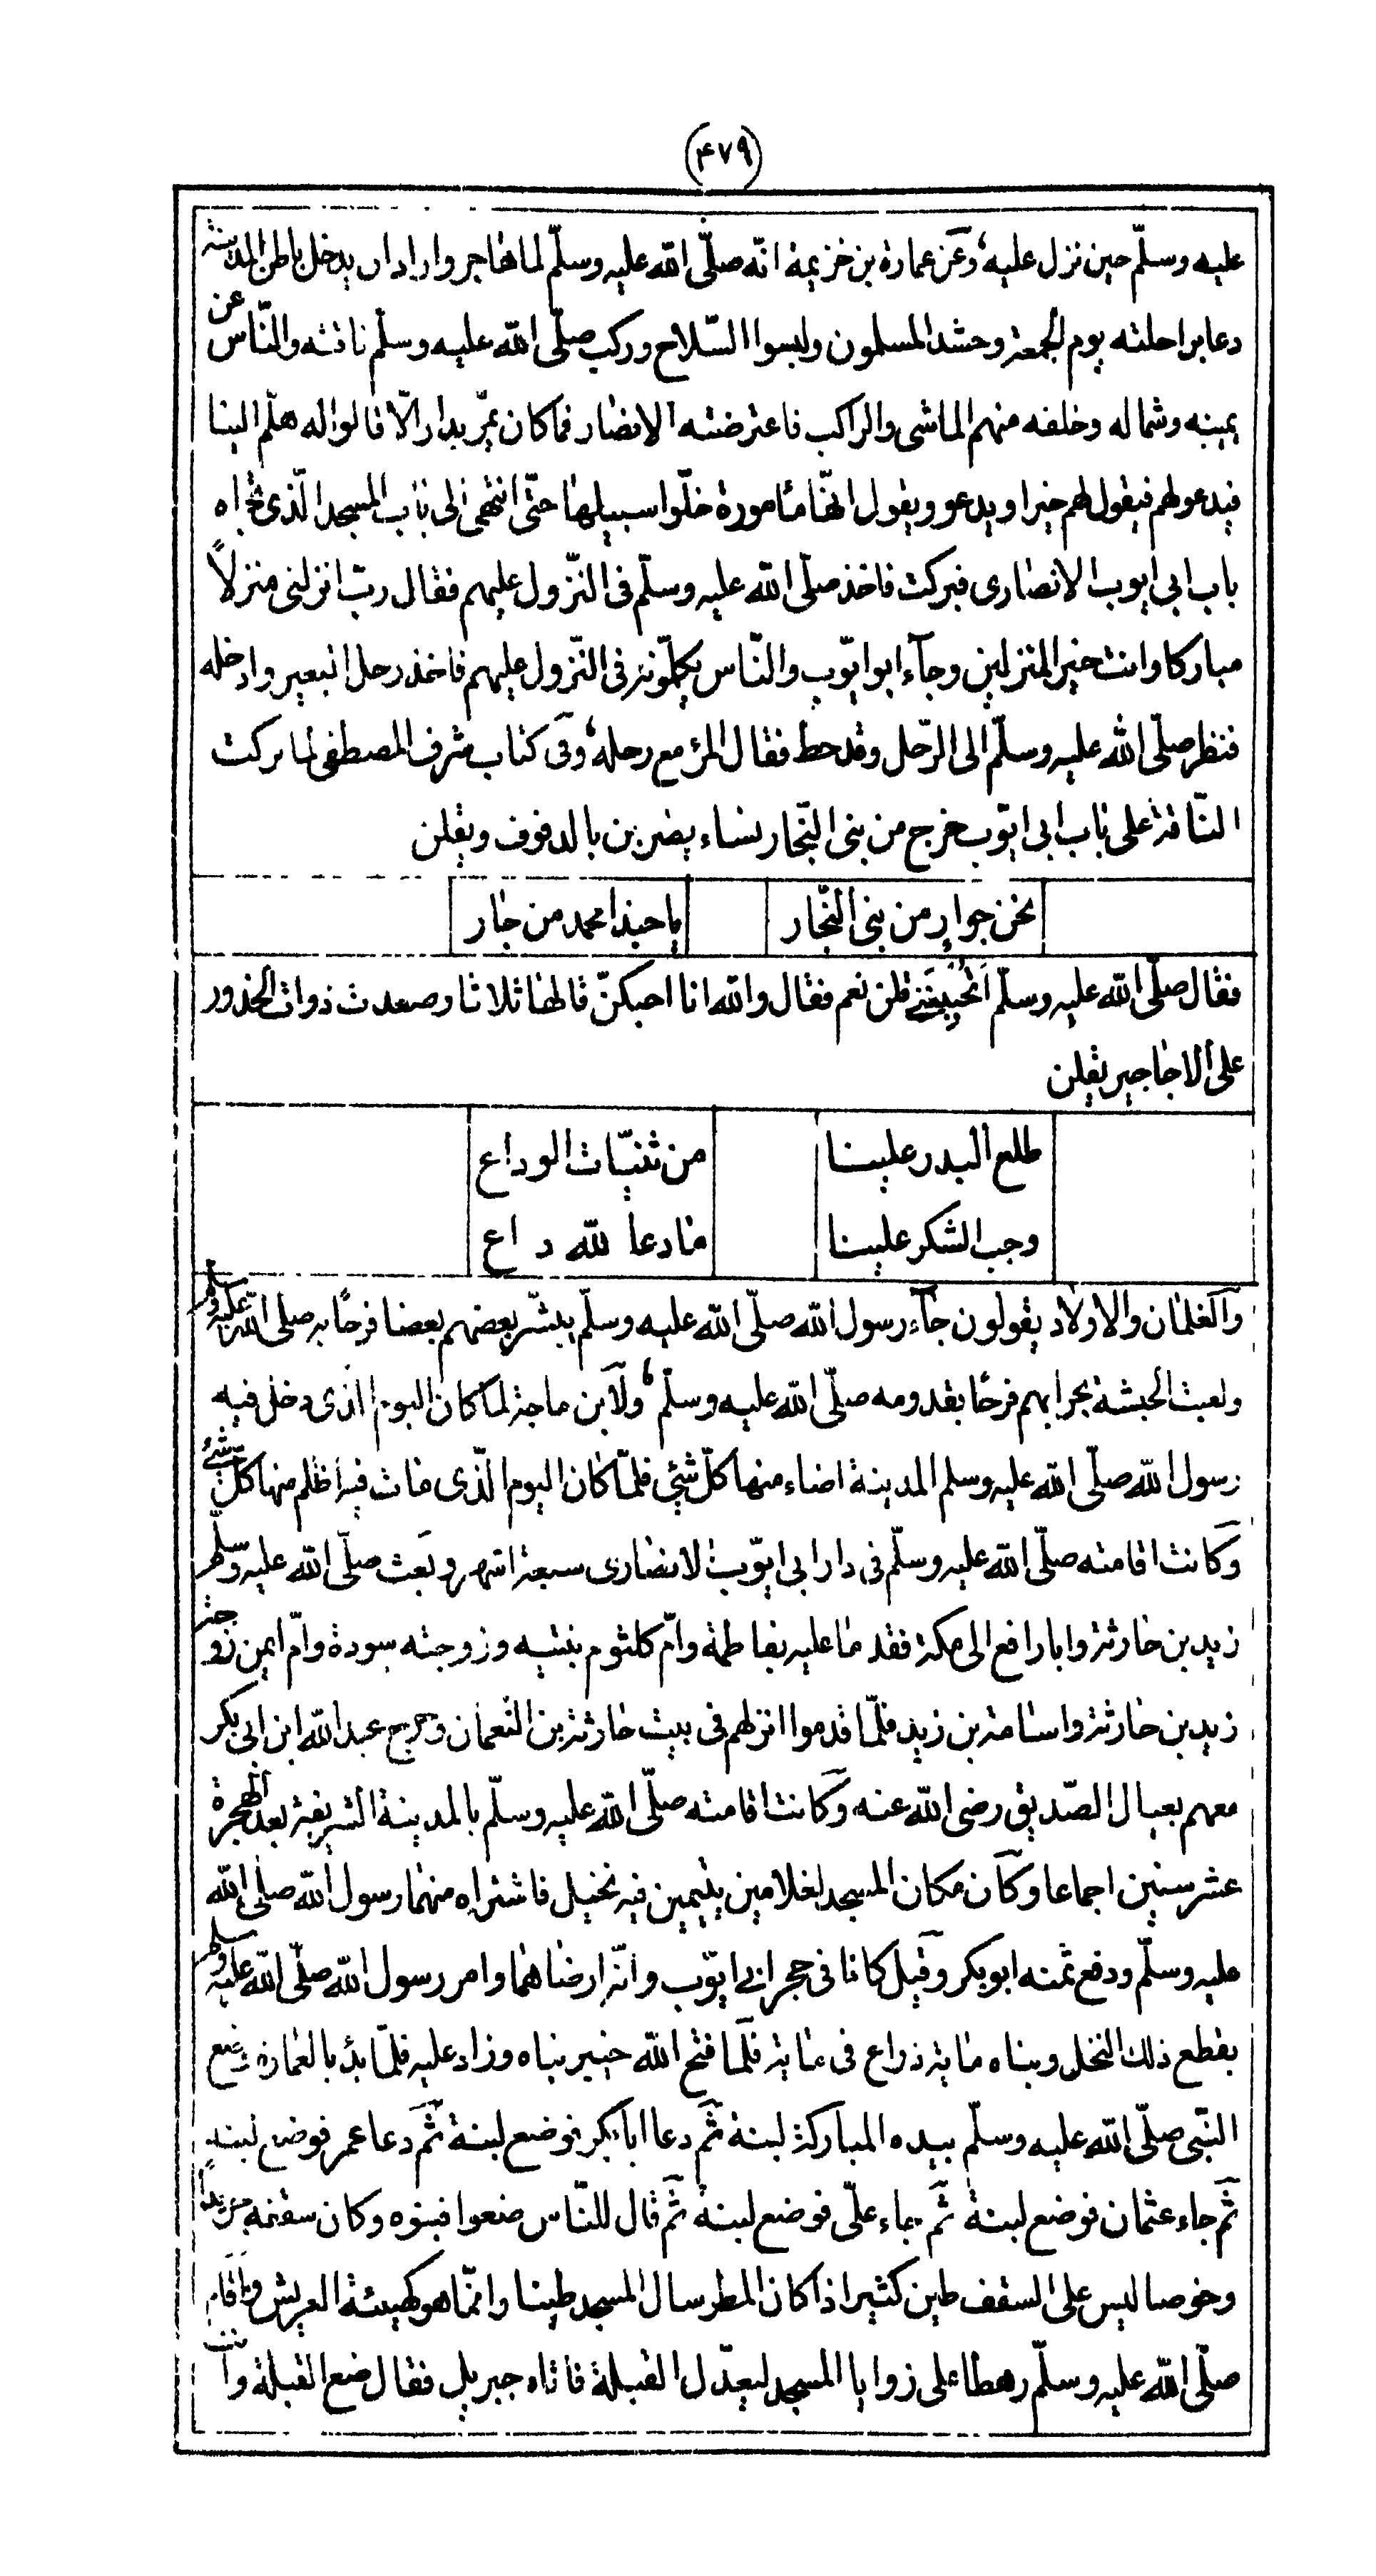 (۴۷۹)
عليه وسلّم حين نزل عليه وعن عمارة بن خزيمة انّه صلّى الله عليه وسلّم لما هاجر واراد ان يدخل باطن المدينة
دعا براحلته يوم الجمعة وحشد المسلمون ولبسوا السّلاح وركب صلّى الله عليه وسلّم ناقته والنّاس عن
يمينه وشماله وخلفه منهم الماشى والراكب فاعترضته الانصار فما كان يمرّ بدار الّا قالوا له هلّم الينا
فيدعو لهم فيقول لهم خيرا ويدعو ويقول انّها مامورة خلّوا سبيلها حتّى انتهى الى باب المسجد الّذى تجاه
باب ابى ايوب الانصارى فبركت فاخذ صلّى الله عليه وسلّم فى النّزول عليهم فقال ربّ انزلنى منزلاً
مباركا وانت خير المنزلين وجآء ابو ايّوب والنّاس يكلّمونه فى النّزول عليهم فاخذ رحل البعير وادخله
فنظر صلّى الله عليه وسلّم الى الرّحل وقد حط فقال المرء مع رحله وفى كتاب شرف المصطفى لما بركت
النّاقة على باب ابى ايّوب خرج من بنى النّجار نساء يضربن بالدفوف ويقلن
نحن جوارٍ من بنى النّجار يا حبذا محمد من جار
فقال صلّى الله عليه وسلّم اَتُحْبِبْنَنِى قلن نعم فقال والله انا احبكنّ قالها ثلاثا وصعدت ذوات الخدور
على الاجاجير يقلن
طلع البدر علينا من ثنيّات الوداع
وجب الشكر علينا ما دعا لله داع
والغلمان والاولاد يقولون جآء رسول الله صلّى الله عليه وسلّم يبشّر بعضهم بعضا فرحًا به صلى الله عليه وسلم
ولعبت الحبشة بحرابهم فرحًا بقدومه صلّى الله عليه وسلّم ولابن ماجة لما كان اليوم الذى دخل فيه
رسول الله صلّى الله عليه وسلم المدينة اضاء منها كلّ شئ فلمّا كان اليوم الّذى مات فيه اظلم منها كلّ شئ
وكانت اقامته صلّى الله عليه وسلّم فى دار ابى ايّوب الانصارى سبعة اشهر وبعث صلّى الله عليه وسلّم
زيد بن حارثة وابا رافع الى مكة فقدما عليه بفاطمة وامّ كلثوم بنتيه وزوجته سودة وامّ ايمن زوجة
زيد بن حارثة واسامة بن زيد فلمّا قدموا انزلهم فى بيت حارثة بن النعمان وخرج عبد الله ابن ابى بكر
معهم بعيال الصّديق رضى الله عنه وكانت اقامته صلّى الله عليه وسلّم بالمدينة الشريفة بعد الهجرة
عشر سنين اجماعا وكان مكان المسجد لغلامين يتيمين فيه نخيل فاشتراه منهما رسول الله صلى الله
عليه وسلّم ودفع ثمنه ابو بكر وقيل كانا فى حجر ابى ايّوب وانّه ارضاهما وامر رسول الله صلّى الله عليه وسلم
بقطع ذلك النخل وبناه ماية ذراع فى ماية فلما فتح الله خيبر بناه وزاد عليه فلمّا بدئ بالعمارة وضع
النّبى صلّى الله عليه وسلّم بيده المباركة لبنة ثمّ دعا ابا بكر فوضع لبنة ثمّ دعا عمر فوضع لبنة
ثمّ جاء عثمان فوضع لبنة ثمّ جاء علىّ فوضع لبنة ثمّ قال للنّاس ضعوا فبنوه وكان سقفه جريداً
وخوصا ليس على السقف طين كثير اذا كان المطر سال المسجد طينا وانمّا هو كهيئة العريش واقام
صلّى الله عليه وسلّم رهطا على زوايا المسجد ليعدّل القبلة فاتاه جبريل فقال ضع القبلة وانت